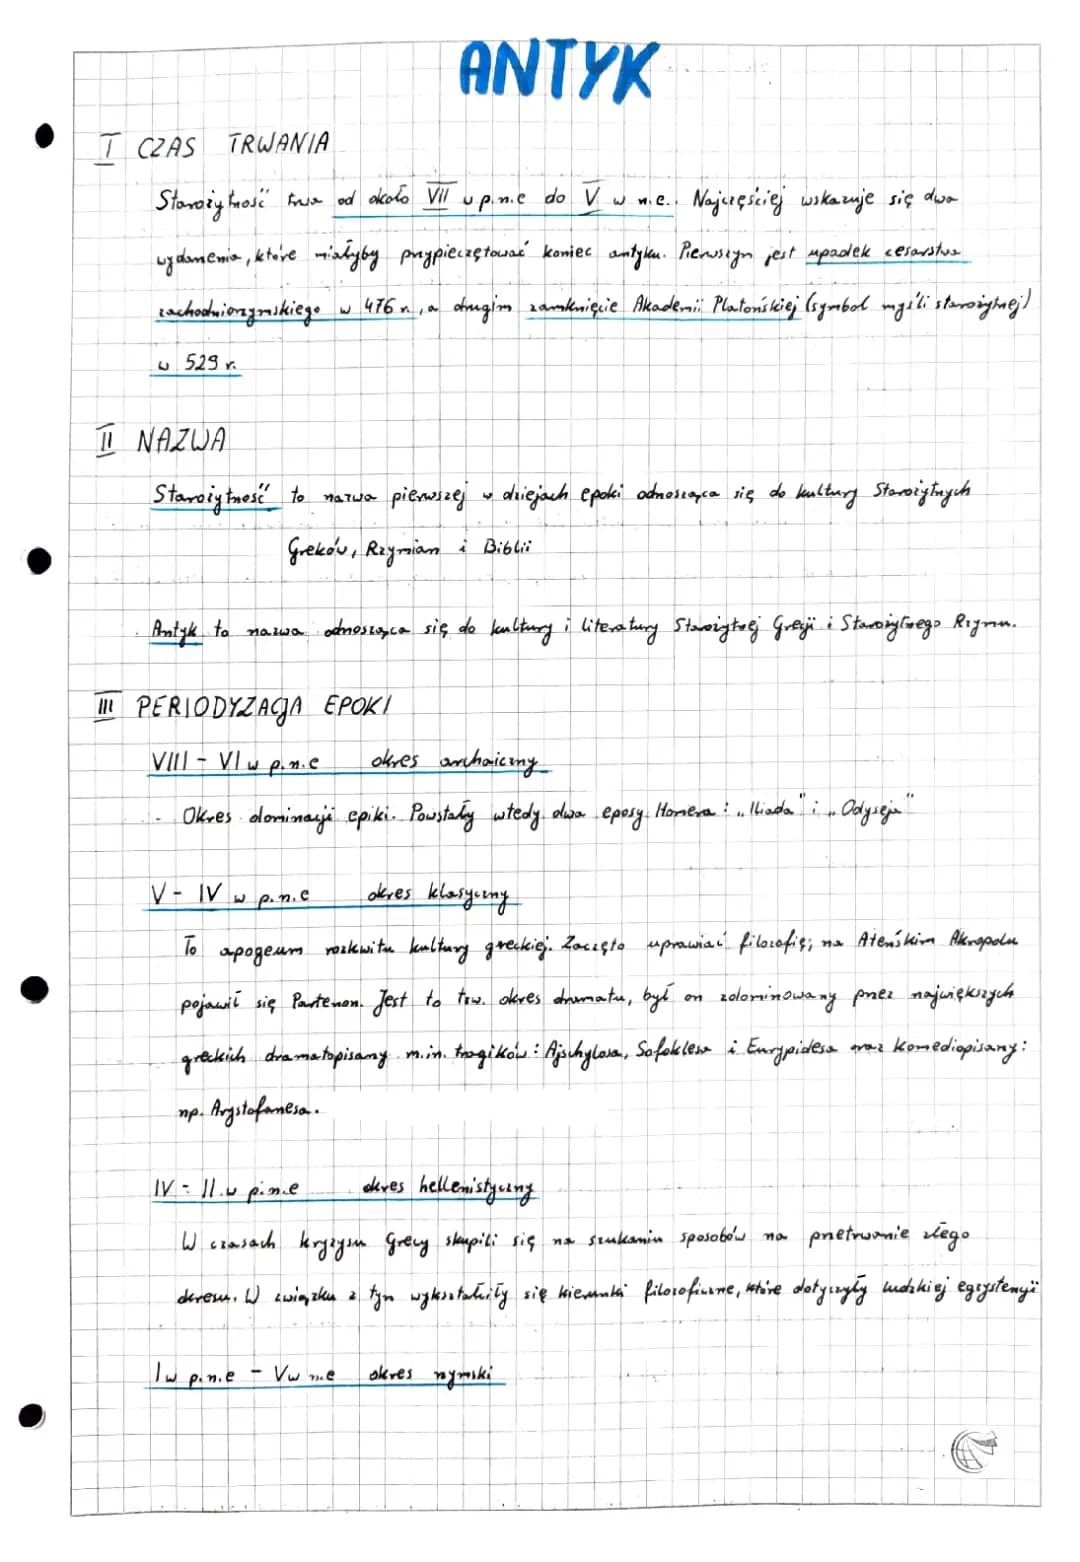 ANTYK
I CZAS TRWANIA
Starożytność trwa od około VII w p.n.e do V w n.e. Najczęściej wskazuje się dwa
wydarzenia, które miałyby przypieczętować koniec antyku. Pierwszym jest upadek cesarstwa
zachodniorzymskiego w 476 r., a drugim zamknięcie Akademii Platońskiej (symbol myśli starożytnej)
w 529 r.
II NAZWA
Starożytność to nazwa pierwszej w dziejach epoki odnosząca się do kultury Starożytnych
Greków, Rzymian i Biblii
Antyk to nazwa odnosząca się do kultury i literatury Starożytnej Grecji i Starożytnego Rzymu.
III PERIODYZACJA EPOKI
VIII - VI w p.n.e okres archaiczny
- Okres dominacji epiki. Powstały wtedy dwa eposy Homera: „Iliada" i „Odyseja"
V - IV w p.n.e okres klasyczny
To apogeum rozkwitu kultury greckiej. Zaczęto uprawiać filozofię; na Ateńskim Akropolu
pojawił się Partenon. Jest to tzw. okres dramatu, był on zdominowany przez największych
greckich dramatopisany m.in. tragików: Ajschylosa, Sofoklesa i Eurypidesa oraz komediopisany:
np. Arystofanesa.
IV - II w p.n.e okres hellenistyczny
W czasach kryzysu Grecy skupili się na szukaniu sposobów na przetrwanie złego
okresu. W związku z tym wykształciły się kierunki filozoficzne, które dotyczyły ludzkiej egzystencji
I w p.n.e - V w n.e okres rzymski